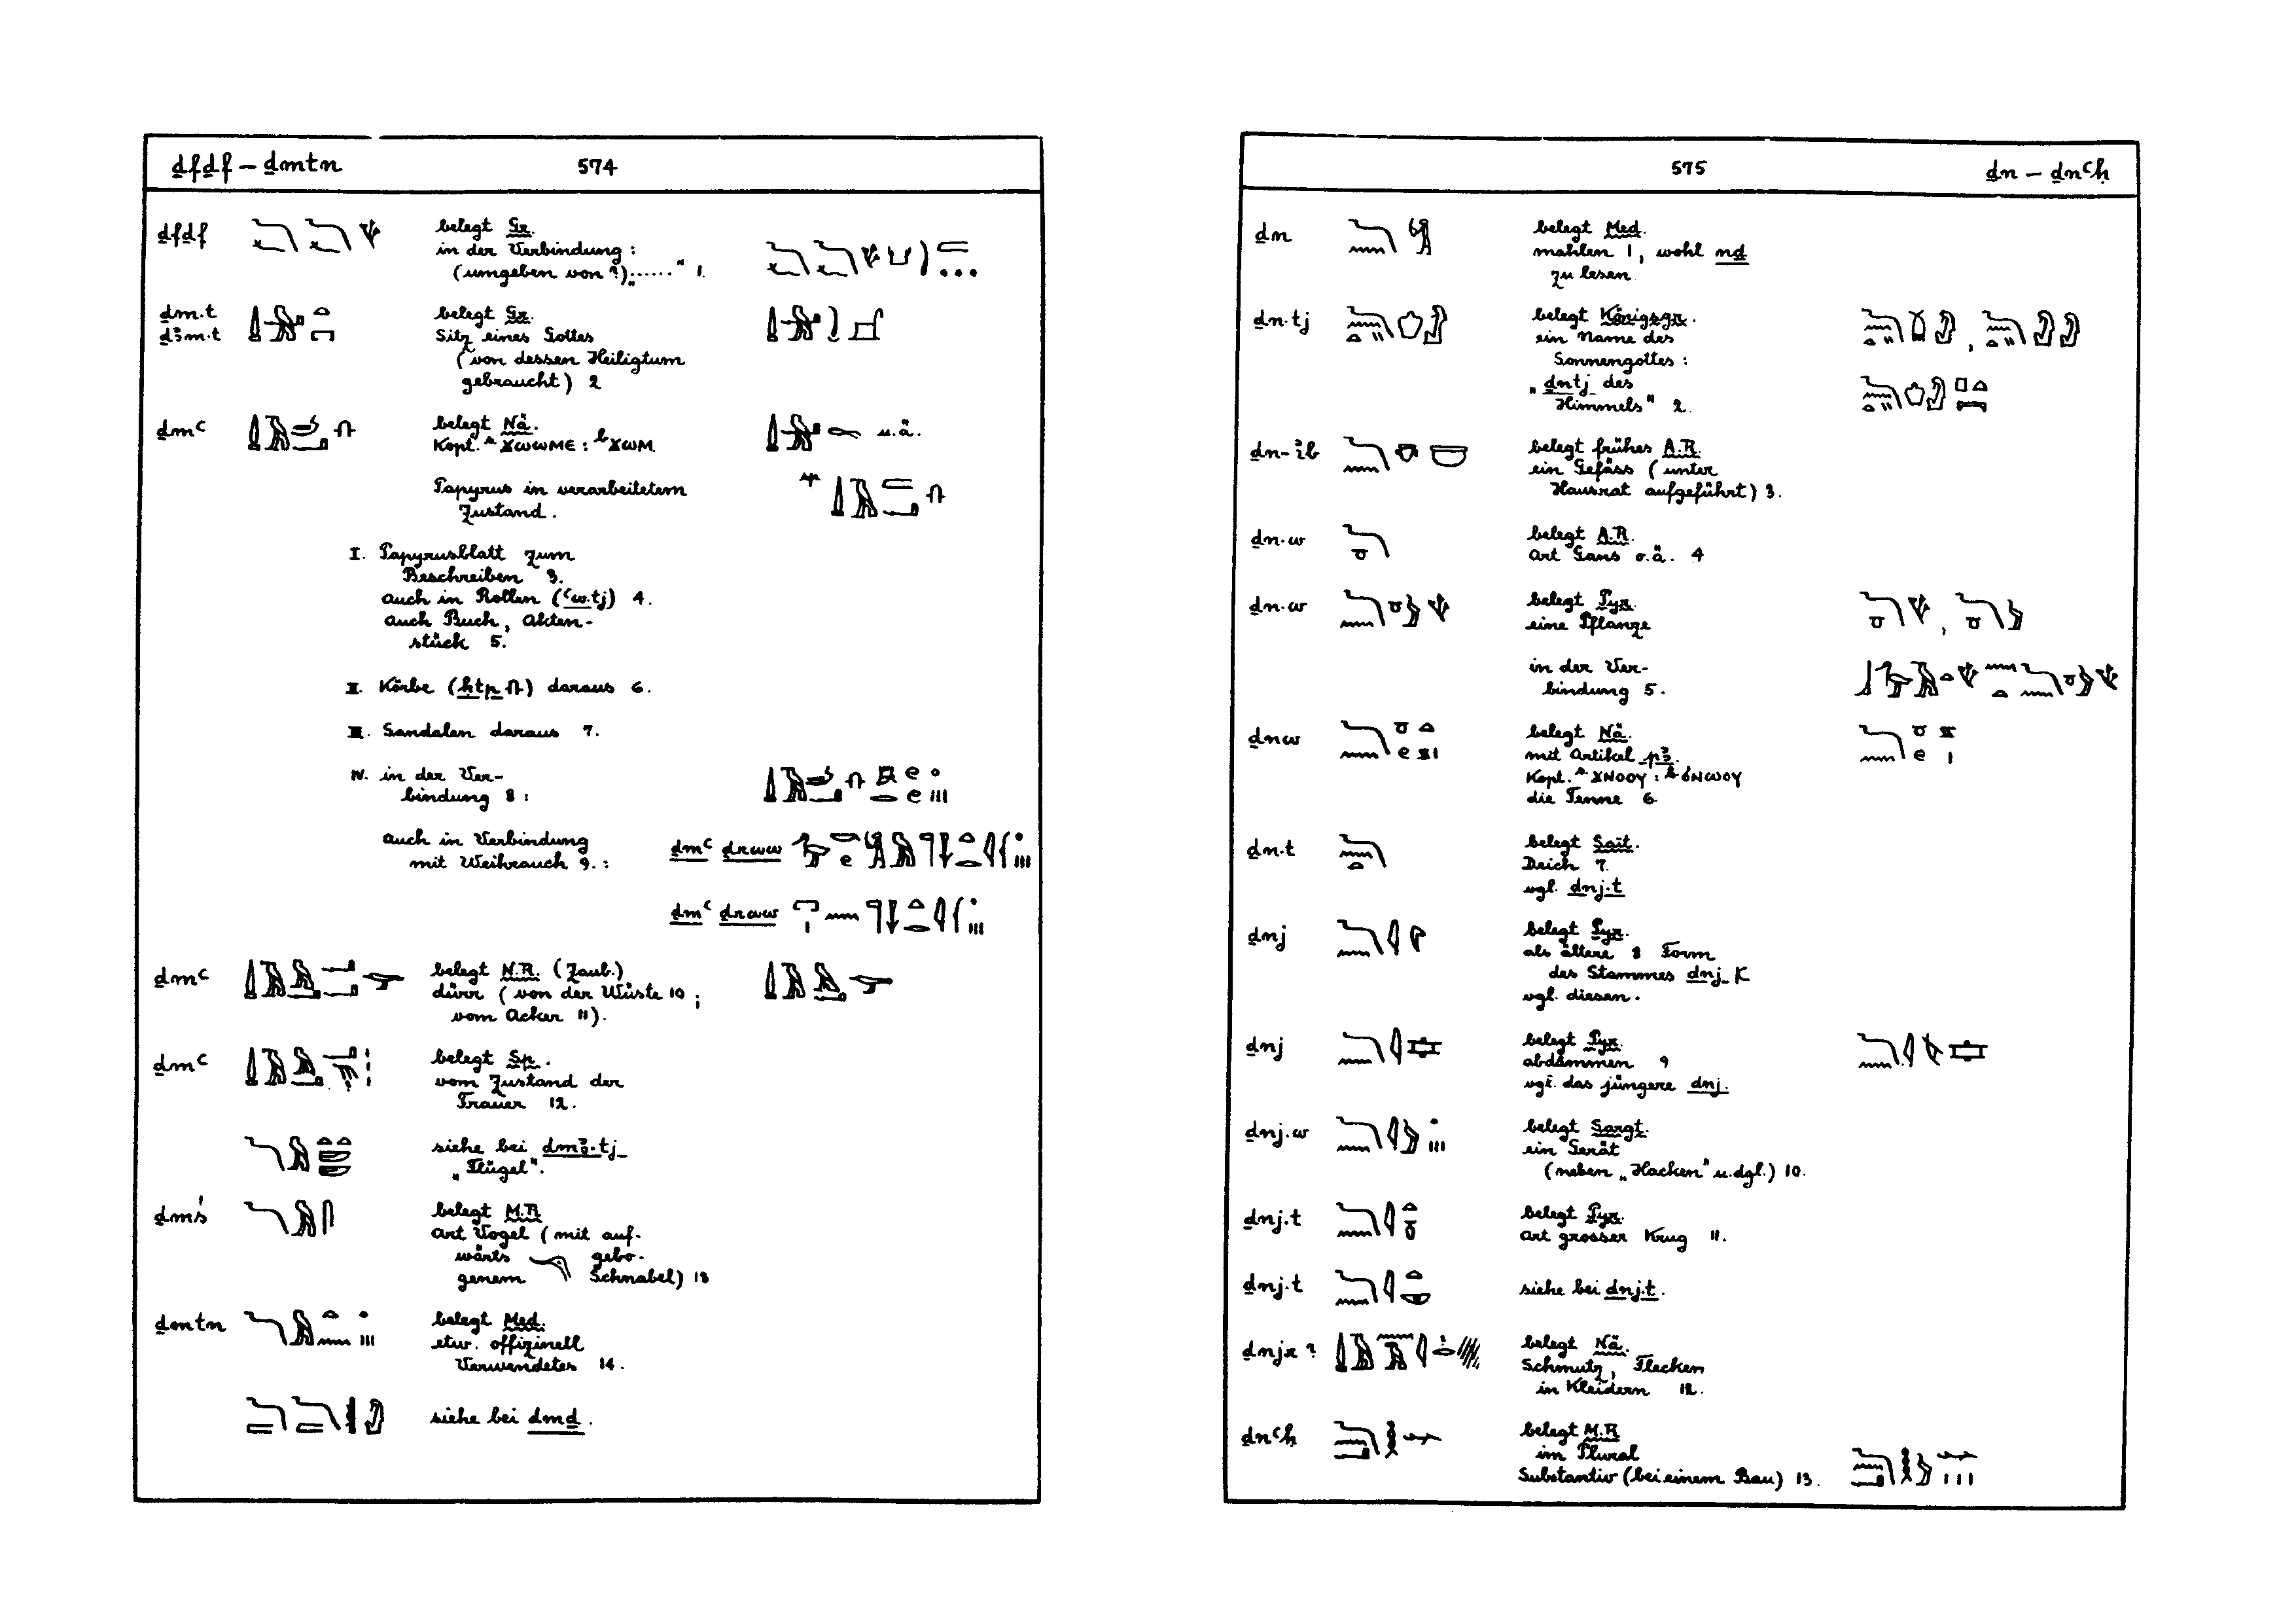 ḏfḏf – ḏmtn 574
ḏfḏf belegt Gr.
in der Verbindung:
(umgeben von?) „......" 1.
ḏm.t belegt Gr.
ḏꜣm.t Sitz eines Gottes
(von dessen Heiligtum
gebraucht) 2
ḏmꜥ belegt Nä.
Kopt. ϪⲰⲰⲘⲈ : ᵇϪⲰⲘ u.ä.
Papyrus in verarbeitetem Sp.
Zustand.
I. Papyrusblatt zum
Beschreiben 3.
auch in Rollen (ꜥw.tj) 4.
auch Buch, Akten-
stück 5.
II. Körbe (ḥtp) daraus 6.
III. Sandalen daraus 7.
IV. in der Ver-
bindung 8:
auch in Verbindung ḏmꜥ ḏrww
mit Weihrauch 9.:
ḏmꜥ ḏrww
ḏmꜥ belegt N.R. (Zaub.)
dürr (von der Wüste 10;
vom Acker 11).
ḏmꜥ belegt Sp.
vom Zustand der
Trauer 12.
siehe bei ḏmꜣ.tj
„Flügel".
ḏmś belegt M.R
Art Vogel (mit auf-
wärts gebo-
genem Schnabel) 13
ḏmtn belegt Med.
etw. offizinell
Verwendetes 14.
siehe bei dmḏ.
575 ḏn – ḏnꜥḥ
ḏn belegt Med.
mahlen 1, wohl nḏ
zu lesen
ḏn.tj belegt Königsgr.
ein Name des
Sonnengottes:
„ḏntj des
Himmels" 2.
ḏn-ꞽb belegt frühes A.R.
ein Gefäss (unter
Hausrat aufgeführt) 3.
ḏn.w belegt A.R.
Art Gans o.ä. 4
ḏn.w belegt Pyr.
eine Pflanze
in der Ver-
bindung 5.
ḏnw belegt Nä.
mit Artikel pꜣ.
Kopt. ϪⲚⲞⲞⲨ : ᵇϬⲚⲰⲞⲨ
die Tenne 6
ḏn.t belegt Sait.
Deich 7.
vgl. dnj.t
ḏnj belegt Pyr.
als ältere 8 Form
des Stammes dnj K
vgl. diesen.
ḏnj belegt Pyr.
abdämmen 9
vgl. das jüngere dnj.
ḏnj.w belegt Sargt.
ein Gerät
(neben „Hacken" u.dgl.) 10.
ḏnj.t belegt Pyr.
Art grosser Krug 11.
ḏnj.t siehe bei dnj.t.
ḏnjr? belegt Nä.
Schmutz, Flecken
in Kleidern 12.
ḏnꜥḥ belegt M.R
im Plural
Substantiv (bei einem Bau) 13.